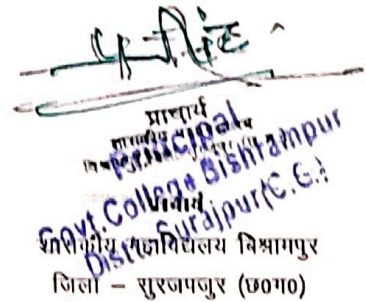 प्राचार्य
Principal
Govt. College Bishrampur
Distt. Surajpur (C.G.)
प्राचार्य
शासकीय महाविद्यालय विश्रामपुर
जिला – सुरजपजुर (छ0ग0)